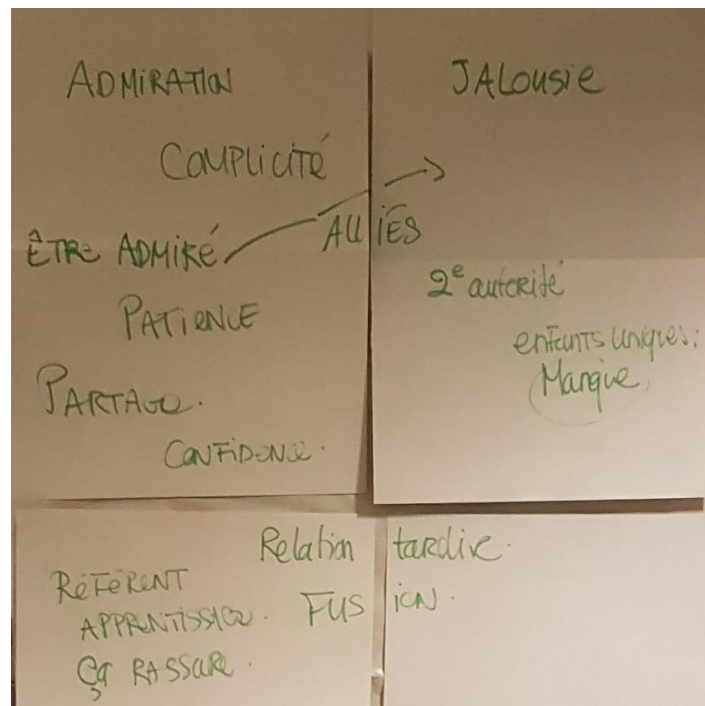 ADMIRATION
COMPLICITÉ
ÊTRE ADMIRÉ
ALLIÉS
PATIENCE
PARTAGE.
CONFIDENCE.
JALOUSIE
2e autorité
enfants uniques:
Manque
Relation tardive.
RÉFÉRENT
APPRENTISSAGE. FUSION.
ÇA RASSURE.